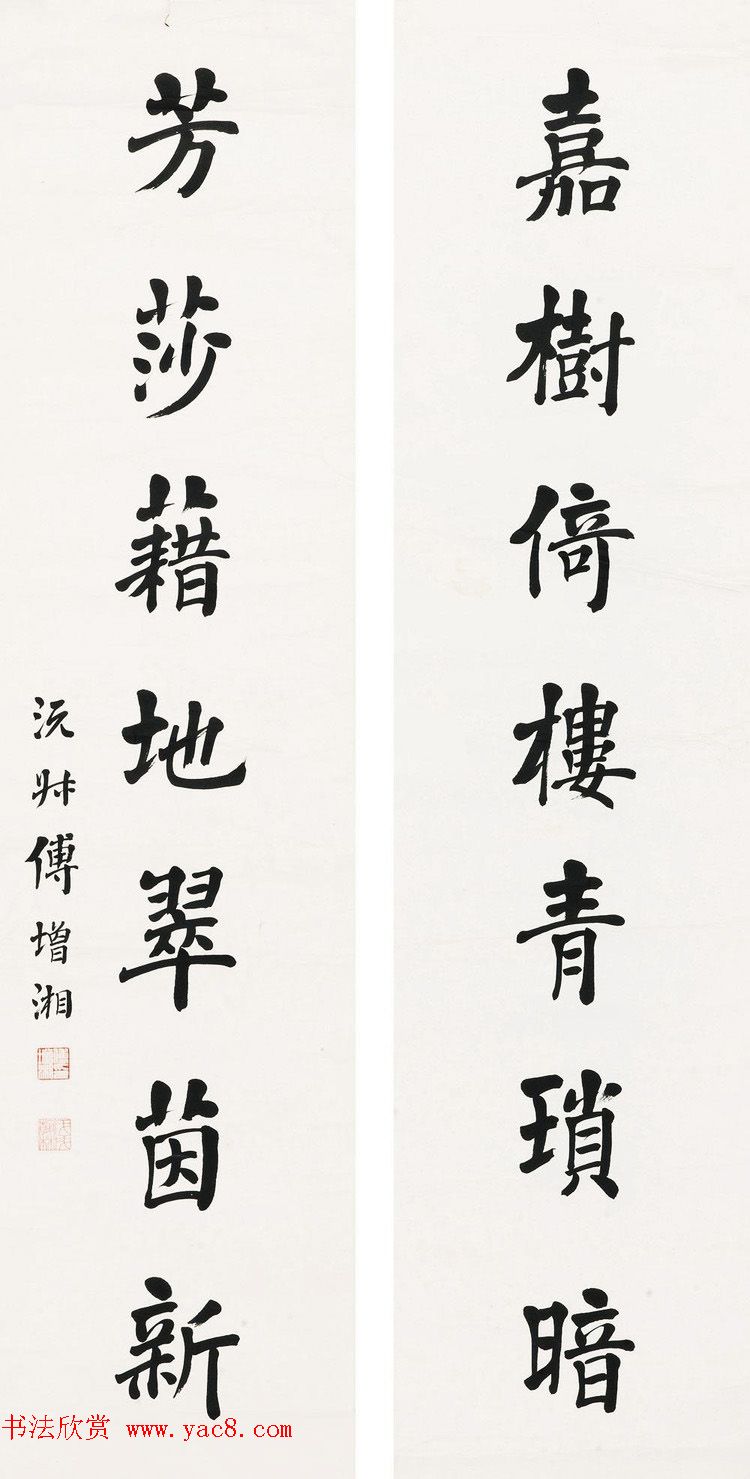 嘉樹倚樓青瑣暗
芳莎藉地翠茵新
沅尗傅增湘
书法欣赏 www.yac8.com